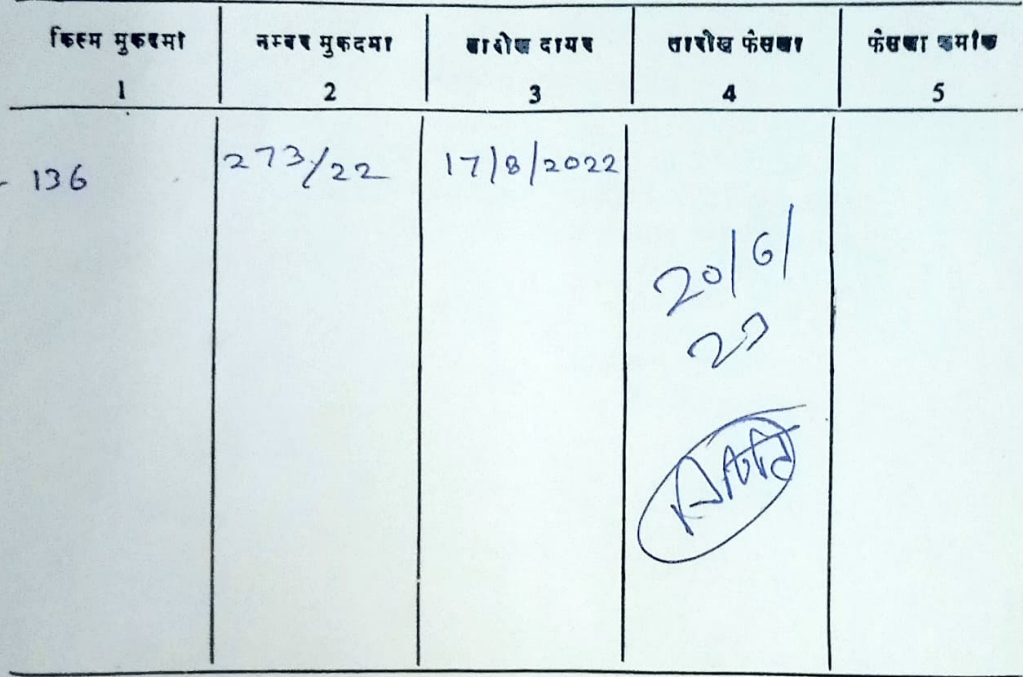 किस्म मुकदमा नम्बर मुकदमा तारीख दायर तारीख फैसला फैसला क्रमांक
1 2 3 4 5
136 273/22 17/8/2022
20/6/
23